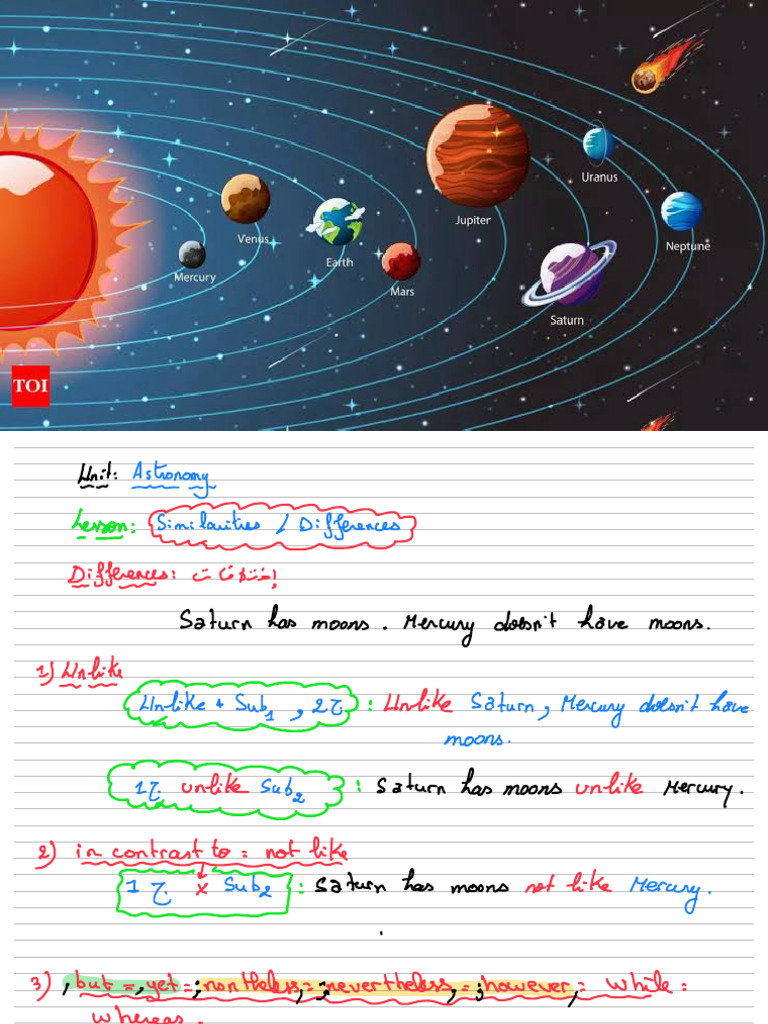 Uranus
Jupiter
Venus
Neptune
Earth
Mercury
Mars
Saturn
TOI
Unit: Astronomy
Lesson: Similarities / Differences
Differences: إختلافات
Saturn has moons. Mercury doesn't have moons.
1) Unlike
Unlike + Sub1 , 2ج : Unlike Saturn, Mercury doesn't have
moons.
1ج unlike Sub2 : Saturn has moons unlike Mercury.
2) in contrast to = not like
1 ج x Sub2 : Saturn has moons not like Mercury.
3) , but = , yet = ; nontheless, = ; nevertheless, = ; however, = while =
whereas.